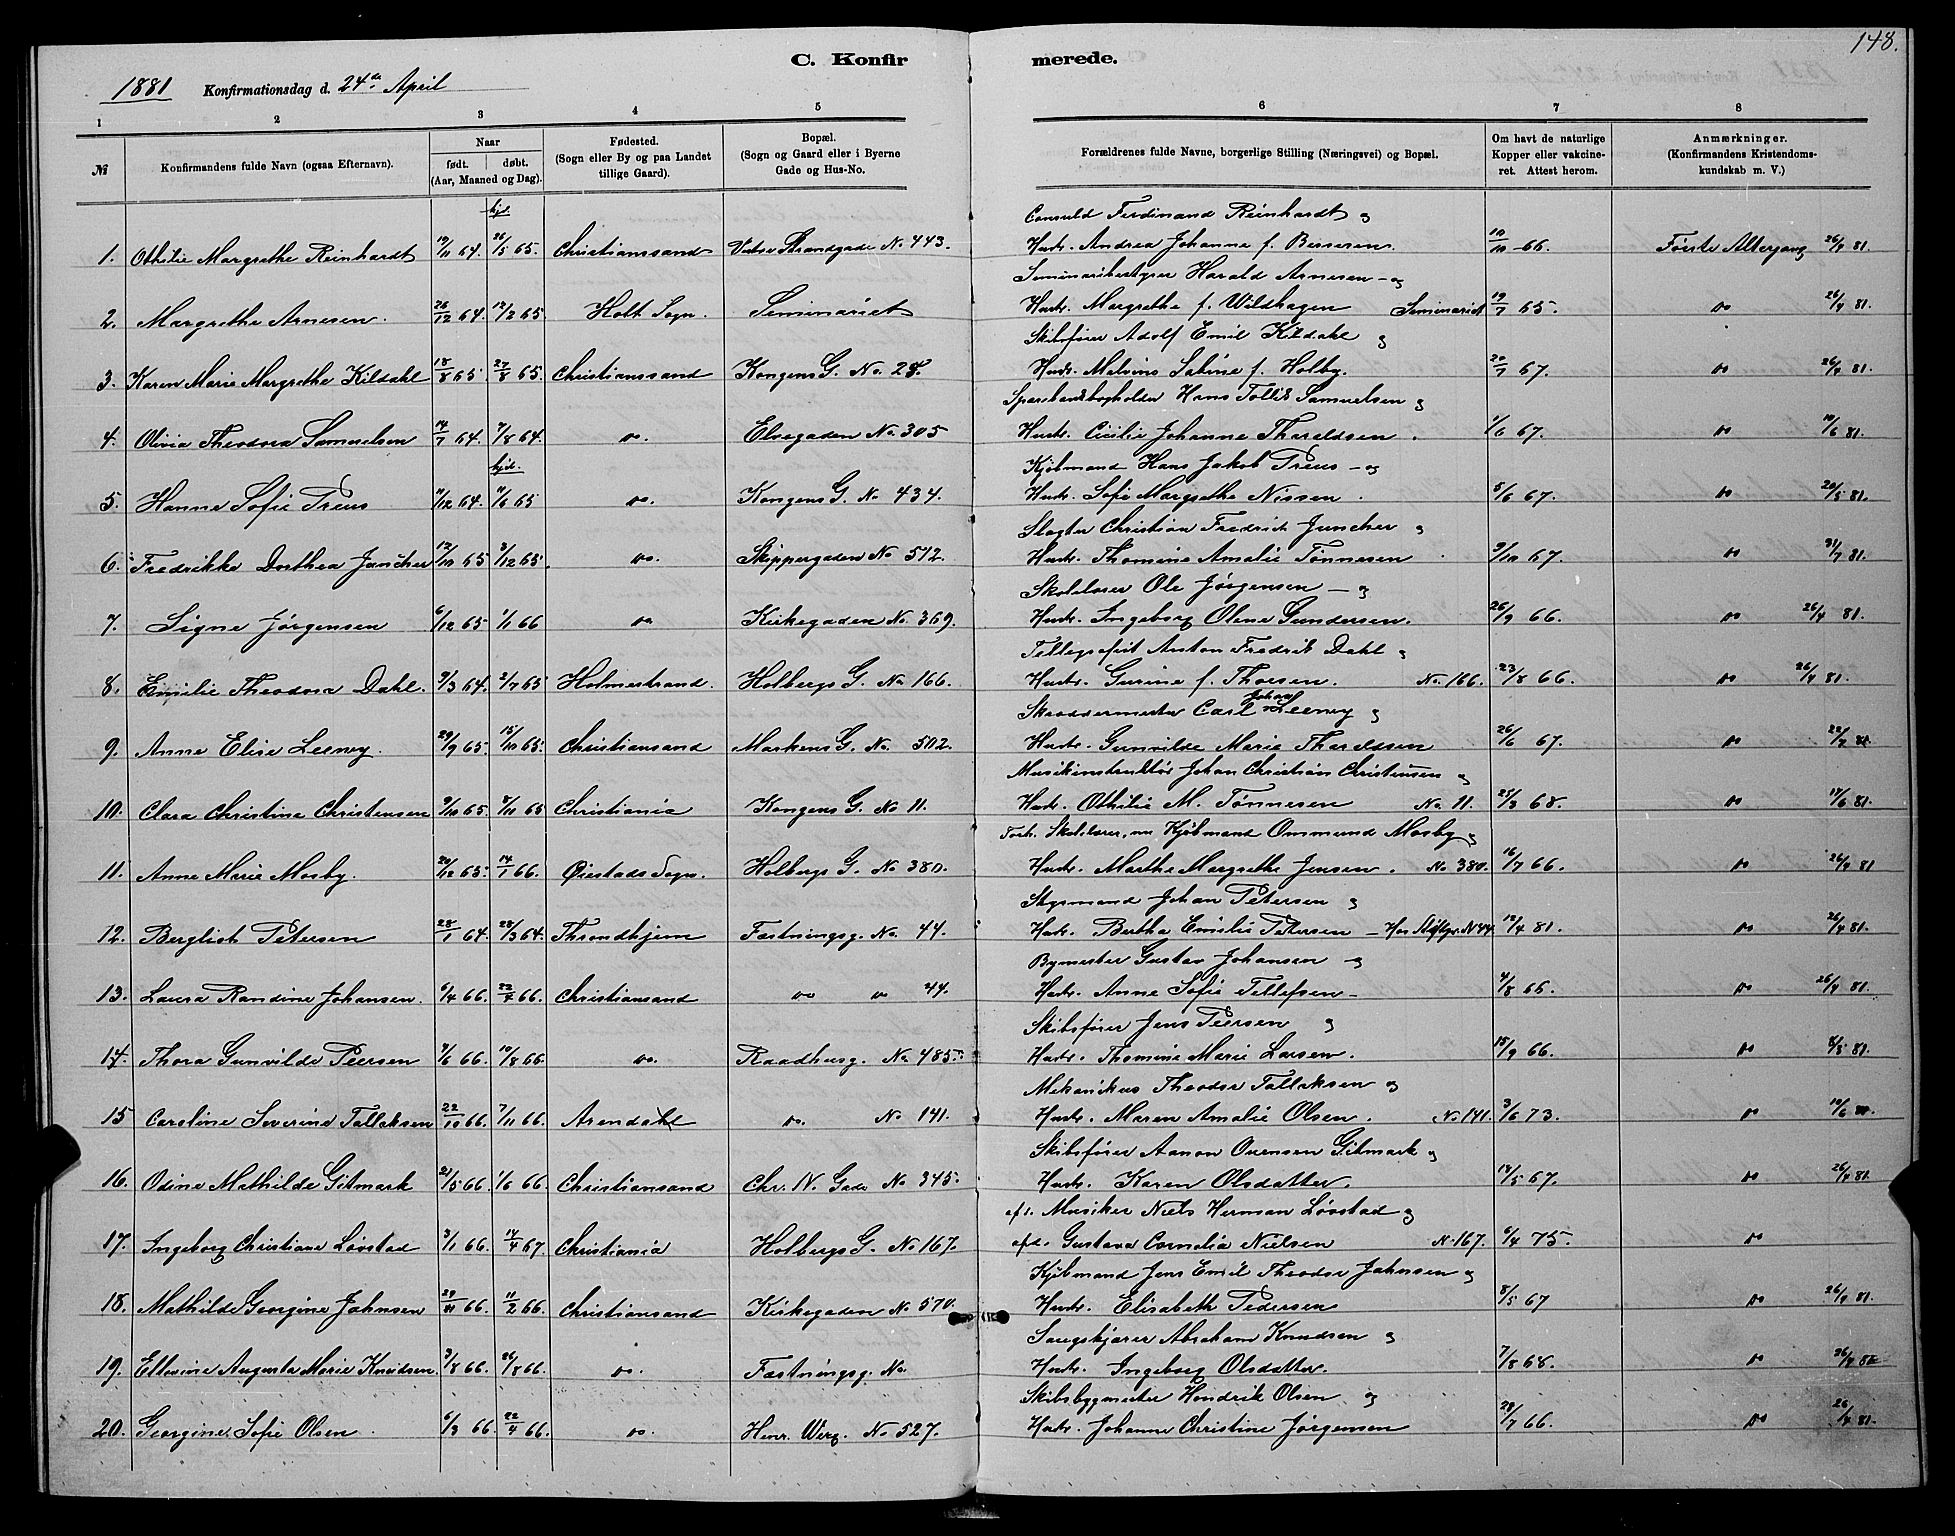 148.
C. Konfirmerede.
1881 Konfirmationsdag d. 24de April
1 2 3 4 5 6 7 8
№ Konfirmandens fulde Navn (ogsaa Efternavn). Naar født. døbt. (Aar, Maaned og Dag). Fødested. (Sogn eller By og paa Landet tillige Gaard). Bopæl. (Sogn og Gaard eller i Byerne Gade og Hus-No. Forældrenes fulde Navne, borgerlige Stilling (Næringsvei) og Bopæl. Om havt de naturlige Kopper eller vakcineret. Attest herom. Anmærkninger. (Konfirmandens Kristendomskundskab m. V.)
Consuld Ferdinand Reinhardt og
1. Othilie Margrethe Reinhardt 19/11 64. hjd. 26/5 65. Christianssand Vestre Strandgade No 443. Hustr. Andrea Johanne f. Besesen. 10/10 66. Første Altergang 26/4 81.
Seminariebestyrer Harald Arnesen – og
2. Margrethe Arnesen. 26/12 64. 12/2 65 Holt Sogn. Seminariet Hustr. Margrethe f. Wildhagen Seminariet 19/7 65. do 26/4 81.
Skibsfører Adolf Emil Kildahl og
3. Karen Marie Margrethe Kildahl 18/8 65 27/8 65. Christianssand Kongens G. No. 28. Hustr. Malvine Sabine f. Holby. 20/7 67. do 26/4 81.
Sparebankbogholder Hans Tollis Samuelsen og
4. Olivia Theodora Samuelsen 14/7 64. 7/8 64. do. Elvegaden No. 305 Hustr. Cicilie Johanne Tharaldsen. 1/6 67. do 19/6 81.
Kjøbmand Hans Jakob Preus – og
5. Hanne Sofie Preus 11/12 64. hjd. 11/1 65 do. Kongens G. No 434. Hustr. Sofie Margrethe Nissen. 5/6 67. do 20/5 81.
Slagter Christian Fredrich Juncher og
6. Fredrikke Dorthea Juncher 12/10 65 3/12 65. do. Skippergaden No 512. Hustr. Thomine Amalie Tønnesen 9/10 67. do 31/7 81.
Skolelærer Ole Jørgensen – og
7. Signe Jørgensen 6/12 65 1/1 66 do Kirkegaden No. 369. Hustr. Ingeborg Olene Gundersen. 26/9 66. do 26/4 81.
Tellegrafist Anton Fredrik Dahl og
8. Emilie Theodora Dahl. 9/3 64. 2/7 65 Holmestrand. Holbergs G. No 166. Hustr. Gurine f. Thorsen. No. 166. 23/8 66. do 26/4 81.
Skreddermester Carl Johan Leeney og
9. Anne Elise Leeney. 29/9 65. 15/10 65. Christianssand Markens G. No. 502. Hustr. Gunvilde Marie Tharaldsen 26/6 67. do
Musikinstruktør Johan Christian Christensen og
10. Clara Christine Christensen 9/10 65 8/11 65 Christiania Kongens G. No 11. Hustr. Othilie M. Tønnesen No. 11. 25/3 68. do 19/6 81.
Forh. Skolelærer, nu Kjøbmand Ommund Mosby og
11. Anne Marie Mosby. 20/12 65. 14/1 66. Øiestads Sogn. Holbergs G. No 380. Hustr. Marthe Margrethe Jensen. No 380. 16/7 66. do 26/4 81
Styrmand Johan Petersen og
12. Bergliot Petersen 28/1 64. 28/3 64. Throndhjem Fæstningsg. No. 44. Hustr. Bertha Emilie Petersen – 12/4 81. do 26/4 81.
Bymester Gustav Johansen – og
13. Laura Randine Johansen. 6/4 66. 22/4 66. Christiansand do do 44. Hustr. Anne Sofie Tellefsen – 4/8 66. do 26/4 81.
Skibsfører Jens Peersen og
14. Thora Gunvilde Peersen 7/6 66. 19/8 66 do. Raadhusg. No 485. Hustr. Thomine Marie Larsen. 15/9 66. do 8/5 81.
Mekanikus Theodor Tallaksen og
15 Caroline Severine Tallaksen 22/10 66. 7/11 66. Arendal do. No 141. Hustr. Maren Amalie Olsen. No 141. 3/6 73. do
Skibsfører Aanon Ounsen Gitmark og
16. Odine Mathilde Gitmark 21/5 66. 1/6 66. Christianssand Chr. IV. Gade No 345. Hustr. Karen Olsdatter. 14/5 67. do 26/4 81.
afd. Musiker Niels Herman Løvstad og
17. Ingeborg Christiane Løvstad 3/1 66. 14/4 67 Christiania Holbergs G. No 167. afd. Gustava Cornelia Nielsen No 167. 6/4 75. do
Kjøbmand Jens Emil Theodor Jahnsen og
18. Mathilde Georgine Jahnsen 66. 11/2 66. Christianssand Kirkegaden No 570. Hustr. Elisabeth Pedersen 8/5 67 do 26/4 81.
Saugskjærer Abraham Knudsen og
19. Ellevine Augusta Marie Knudsen. 3/8 66. 26/8 66. do. Fæstningsg. No Hustr. Ingeborg Olsdatter. 7/8 68. do 26/4 81
Skibsbygmester Hendrik Olsen og
20. Georgine Sofie Olsen. 6/3 66. 22/4 66. do. Henr. Werg. No 527. Hustr. Johanne Christine Jørgensen 28/7 66. do 26/4 81.